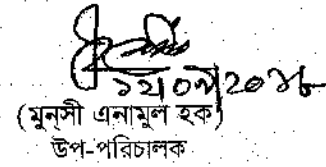 ১২/০৯/২০১৮
(মুনসী এনামুল হক)
উপ-পরিচালক